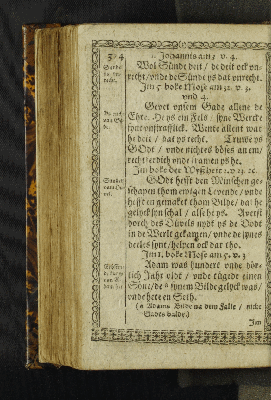 314
1. Johannis am 3. v. 4.
Wol Sünde deit / de deit ock vn-
recht / vnde de Sünde ys dat vnrecht.
Im 5. boke Mose am 32. v. 3.
vnd 4.
Gevet vnsem Gade allene de
Ehre. He ys ein Fels / syne Wercke
synt vnstrafflick. Wente allent wat
he deit / dat ys recht. Truwe ys
GOdt / vnde nichtes böses an em /
rechtferdich vnde
Im boke der Wyßheit 2. v. 23. 24.
GOdt hefft den Minschen ge-
schapen thom ewigen Levende / vnde
hefft en gemaket thom Bilde / dat he
gelyck syn schal / alse he ys. Averst
dorch des Düvels nydt ys de Dodt
in de Werlt gekamen / vnde de synes
deeles synt / helpen ock dar tho.
Im 1. boke Mose am 5. v. 3
Adam was hundert vnde dör-
tich Jahr oldt / vnde tügede einen
Söne / de synem Bilde gelyck was /
vnde hete en Seth.
(a Adams Bilde na dem Falle / nicht
Gades bilde.)
Im